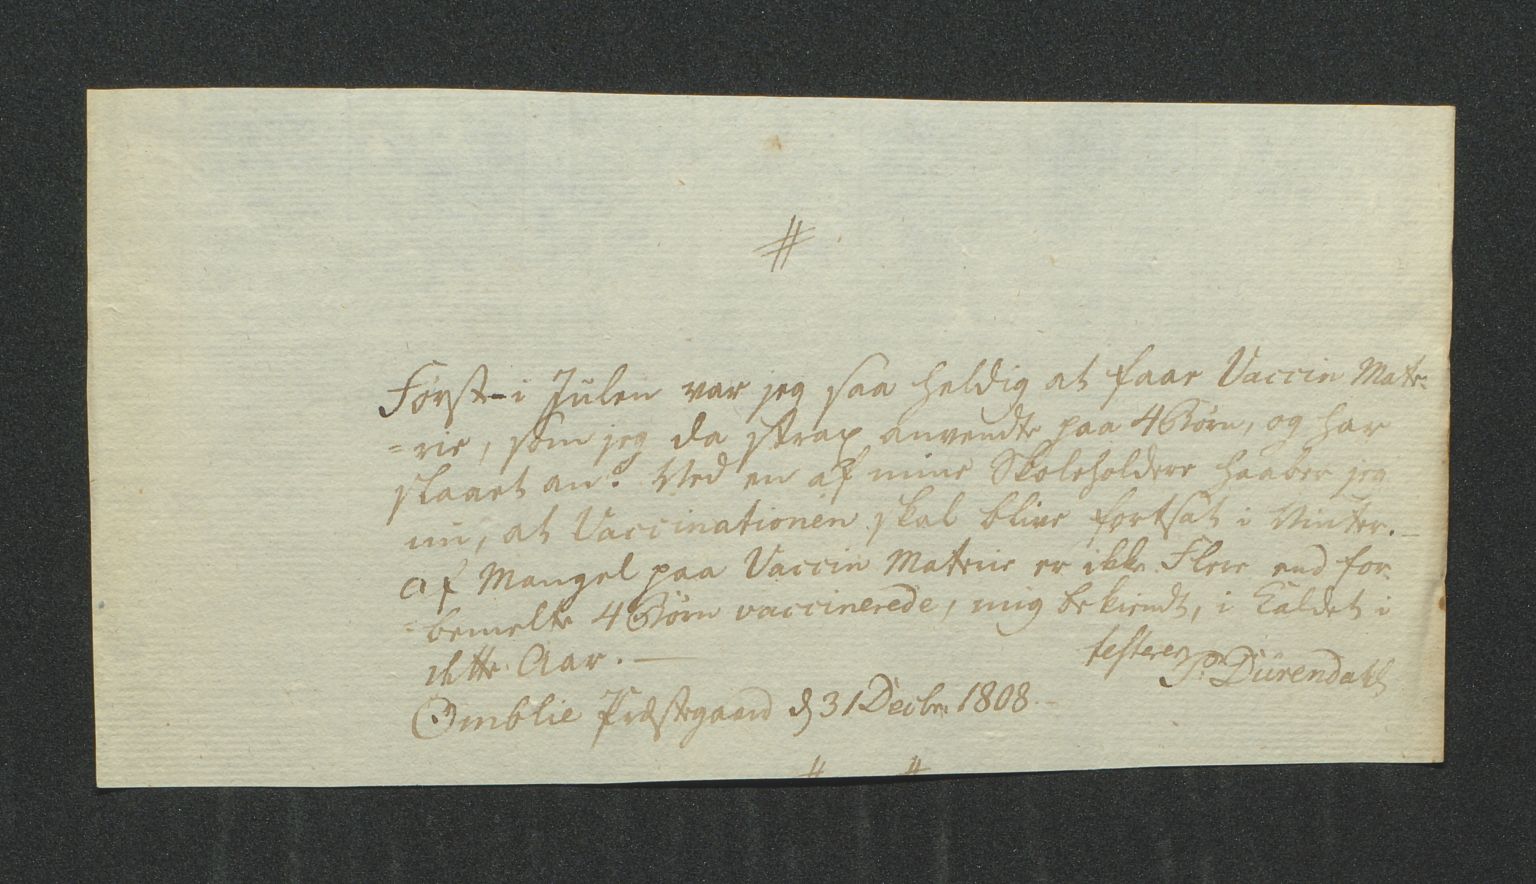 #
Først i Julen var jeg saa heldig at faae Vaccin Mate-
=rie, som jeg da strax anvendte paa 4 Børn, og har
slaaet an. Ved en af mine Skoleholdere haaber jeg
nu, at Vaccinationen skal blive fortsat i Vinter. —
Af Mangel paa Vaccin Materie er ikke Flere end for-
=bemelte 4 Børn vaccinerede, mig bekiendt, i Kaldet i
dette Aar. —
testerer
P: Dürendahl
Omblie Præstegaard d 31 Decbr: 1808.
# #